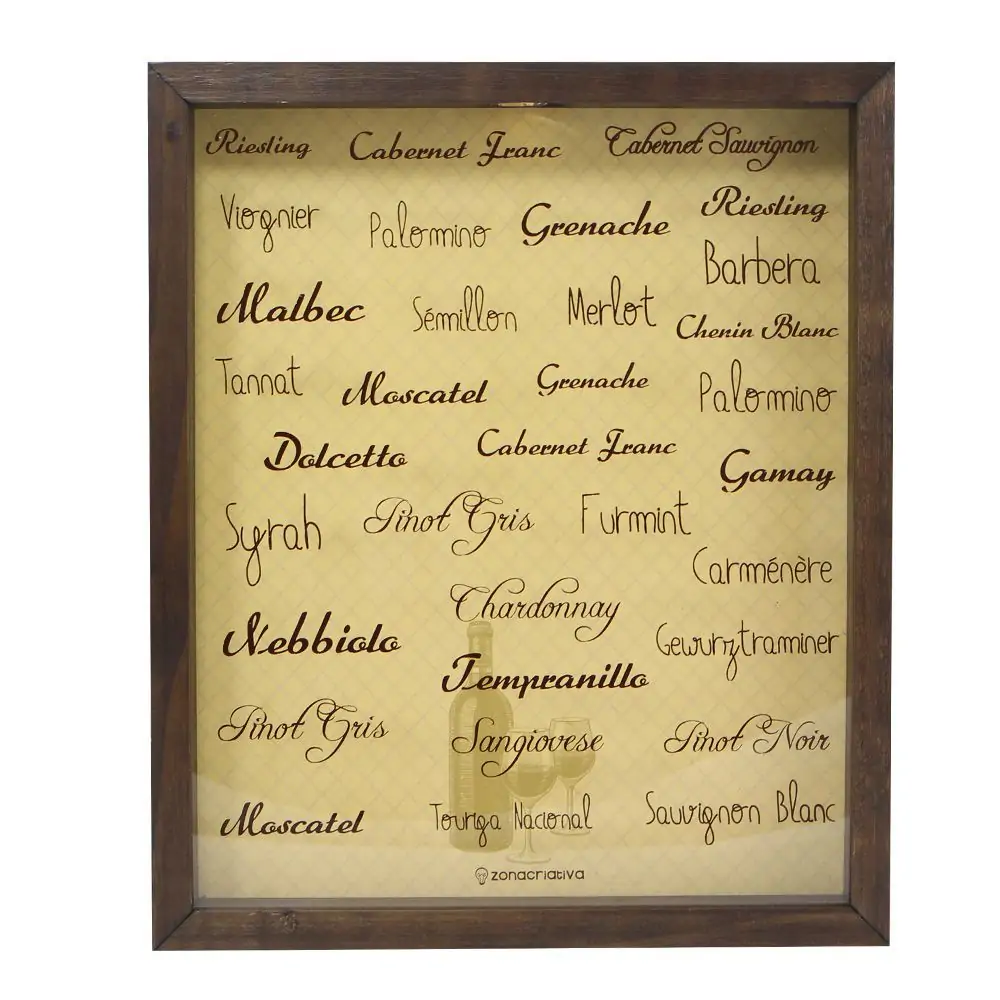 Riesling Cabernet Franc Cabernet Sauvignon
Viognier Palomino Grenache Riesling
Barbera
Malbec Sémillon Merlot
Chenin Blanc
Tannat Moscatel Grenache Palomino
Dolcetto Cabernet Franc
Gamay
Syrah Pinot Gris Furmint
Carménère
Chardonnay
Nebbiolo Gewurztraminer
Tempranillo
Pinot Gris Sangiovese Pinot Noir
Moscatel Touriga Nacional Sauvignon Blanc
zonacriativa